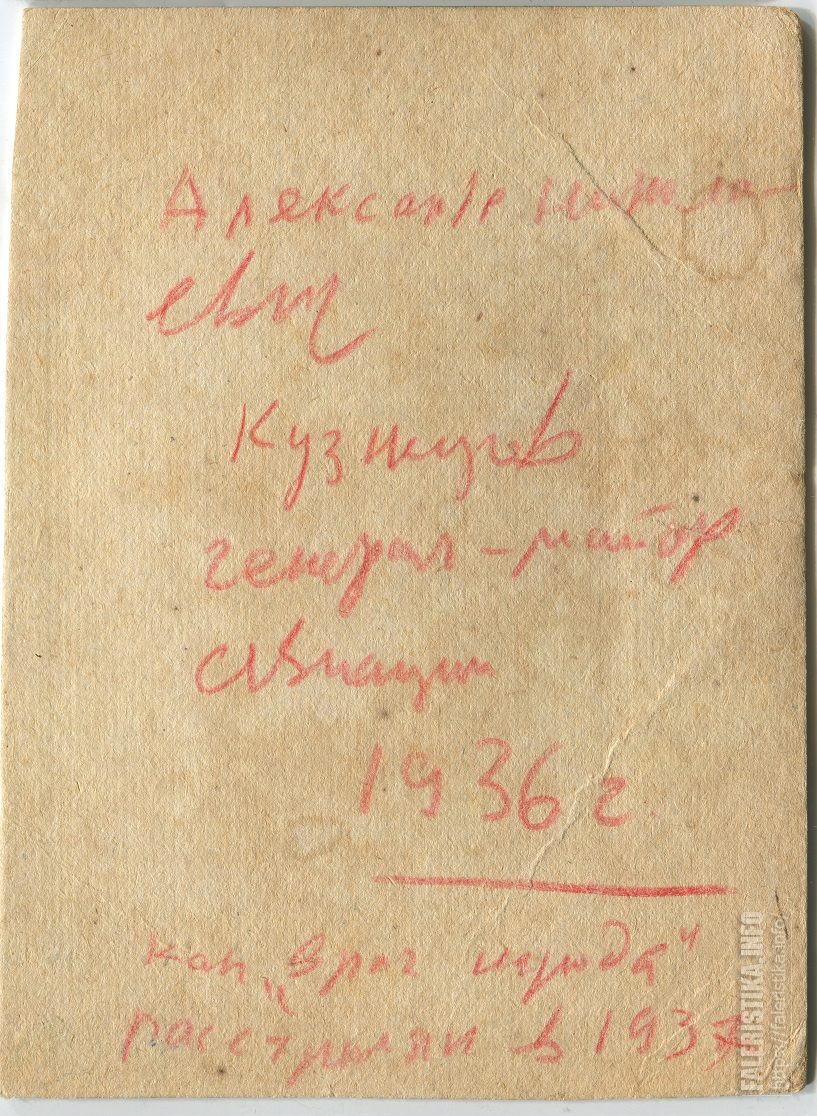 Александр Никола-
евич
Кузнецов
генерал-майор
авиации
1936 г
как „враг народа"
расстрелян в 1937
FALERISTIKA.INFO
https://faleristika.info